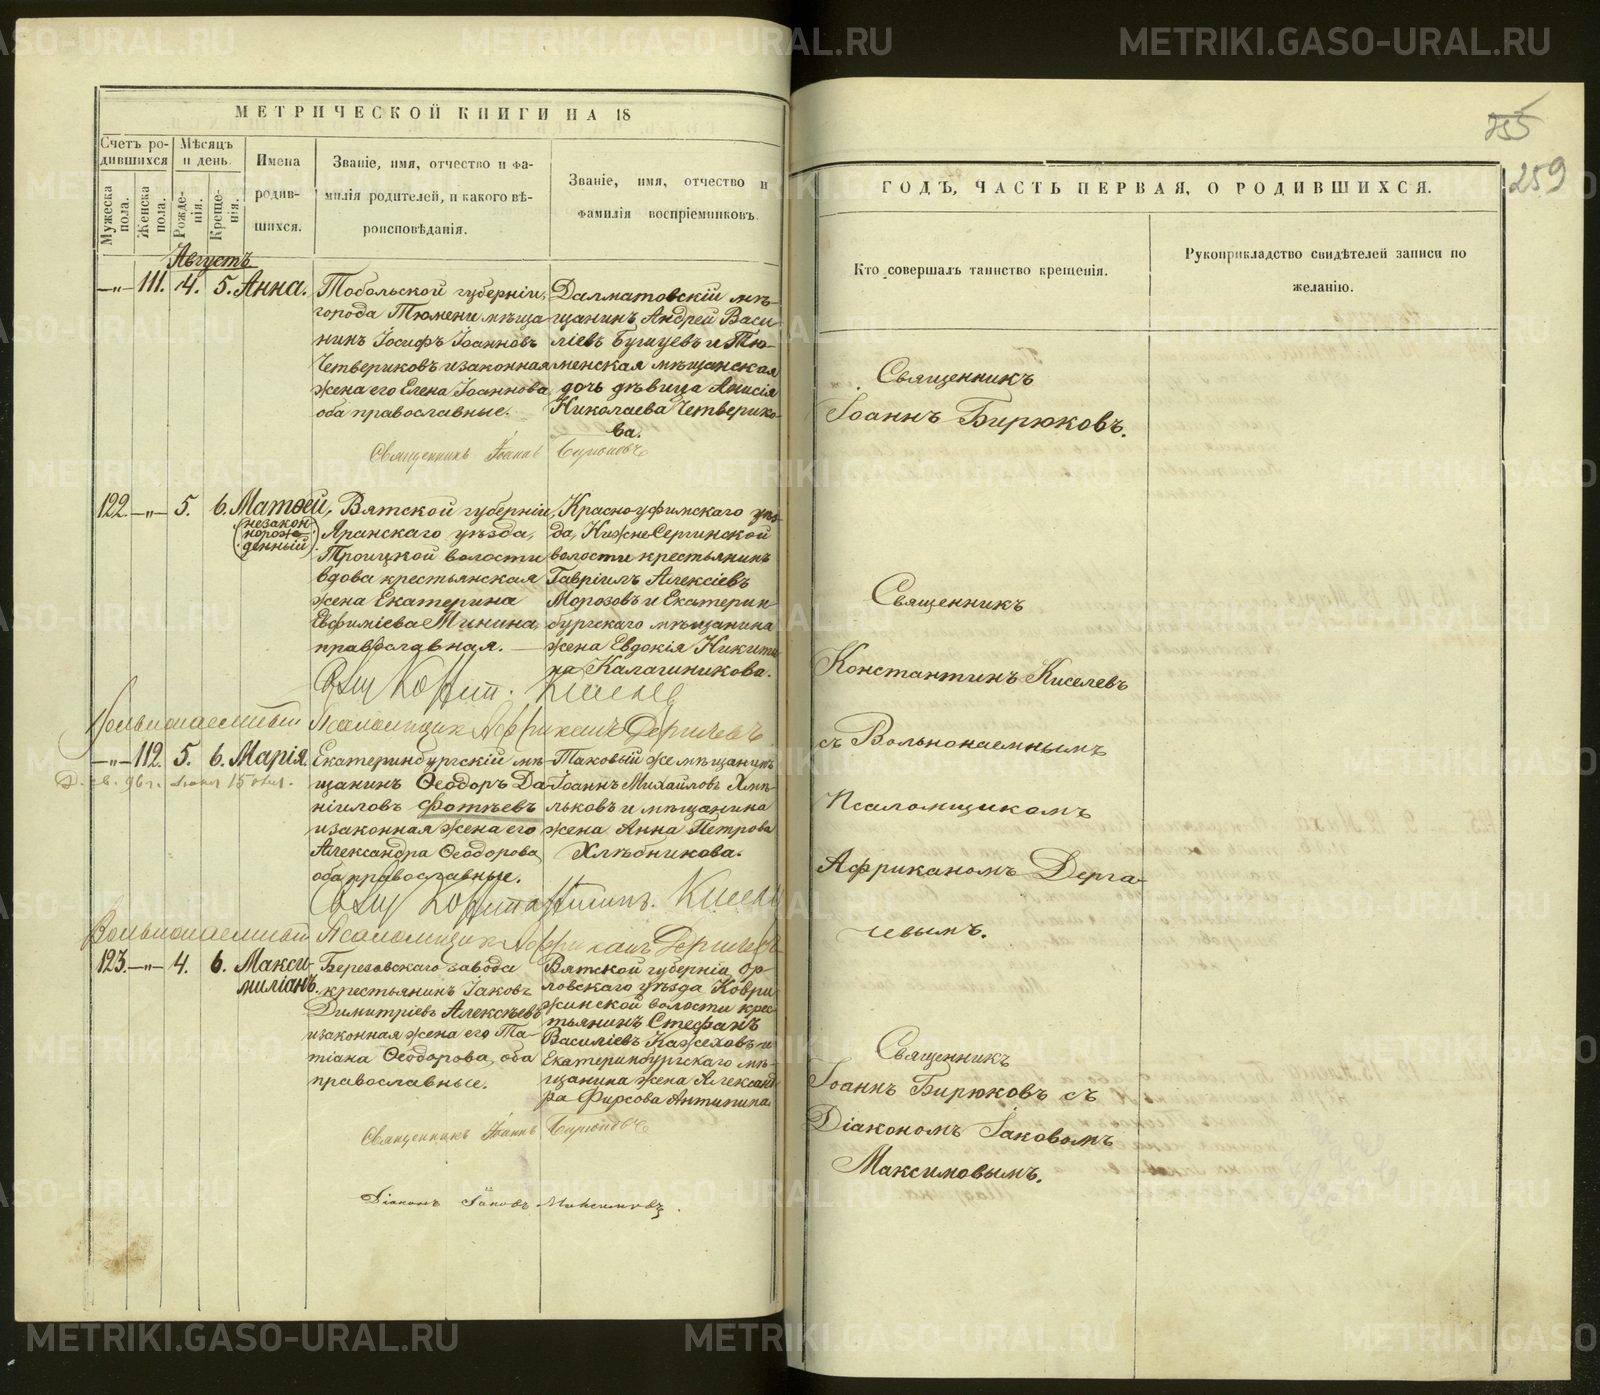 МЕТРИЧЕСКОЙ КНИГИ НА 18
Счетъ родившихся
Мѣсяцъ и день.
Мужеска пола.
Женска пола.
Рожденія.
Крещенія.
Имена родившихся.
Званіе, имя, отчество и фамилія родителей, и какого вѣроисповѣданія.
Званіе, имя, отчество и фамилія воспріемниковъ.
Августъ
—„— 111. 4. 5. Анна.
Тобольской губерніи,
города Тюмени мѣща
нинъ Іосифъ Іоанновъ
Четвериковъ и законная
жена его Елена Іоаннова,
оба православные.
Далматовскій мѣ-
щанинъ Андрей Васи
ліевъ Бушуевъ и Тю-
менская мѣщанская
дочь дѣвица Анисія
Николаева Четверико-
ва.
Священникъ Іоаннъ Бирюковъ
122. —„— 5. 6. Матѳей,
(незакон-
норож-
денный)
Вятской губерніи,
Яранскаго уѣзда,
Троицкой волости
вдова крестьянская
жена Екатерина
Евфиміева Минина,
православная.
Красноуфимскаго уѣз-
да, Нижне Сергинской
волости крестьянинъ
Гавріилъ Алексіевъ
Морозовъ и Екатерин-
бургскаго мѣщанина
жена Евдокія Никити
на Калашникова.
Вольнонаемный Псаломщик Африканъ Дергачевъ
—„— 112. 5. 6. Марія.
Екатеринбургскій мѣ-
щанинъ Ѳеодоръ Да-
ніиловъ Фотѣевъ
и законная жена его
Александра Ѳеодорова,
оба православные.
Таковый же мѣщанинъ
Іоаннъ Михайловъ Хмѣ-
льковъ и мѣщанина
жена Анна Петрова
Хлѣбникова.
Вольнонаемный Псаломщик Африканъ Дергачевъ
123. —„— 4. 6. Макси-
миліанъ.
Березовскаго завода
крестьянинъ Іаковъ
Димитріевъ Алексѣевъ
и законная жена его Та-
тіана Ѳеодорова, оба
православные.
Вятской губерніи, Ор-
ловскаго уѣзда Коври-
жинской волости крес-
тьянинъ Стефанъ
Василіевъ Кажеховъ и
Екатеринбургскаго мѣ-
щанина жена Александ
ра Фирсова Антипина.
Священникъ Іоаннъ Бирюковъ
Діаконъ Іаковъ Максимовъ.
355
259
ГОДЪ, ЧАСТЬ ПЕРВАЯ, О РОДИВШИХСЯ.
Кто совершалъ таинство крещенія.
Рукоприкладство свидѣтелей записи по желанію.
Священникъ
Іоаннъ Бирюковъ.
Священникъ
Константинъ Киселевъ
съ Вольнонаемнымъ
Псаломщикомъ
Африканомъ Дерга-
чевымъ.
Священникъ
Іоаннъ Бирюковъ съ
Діакономъ Іаковомъ
Максимовымъ.
METRIKI.GASO-URAL.RU